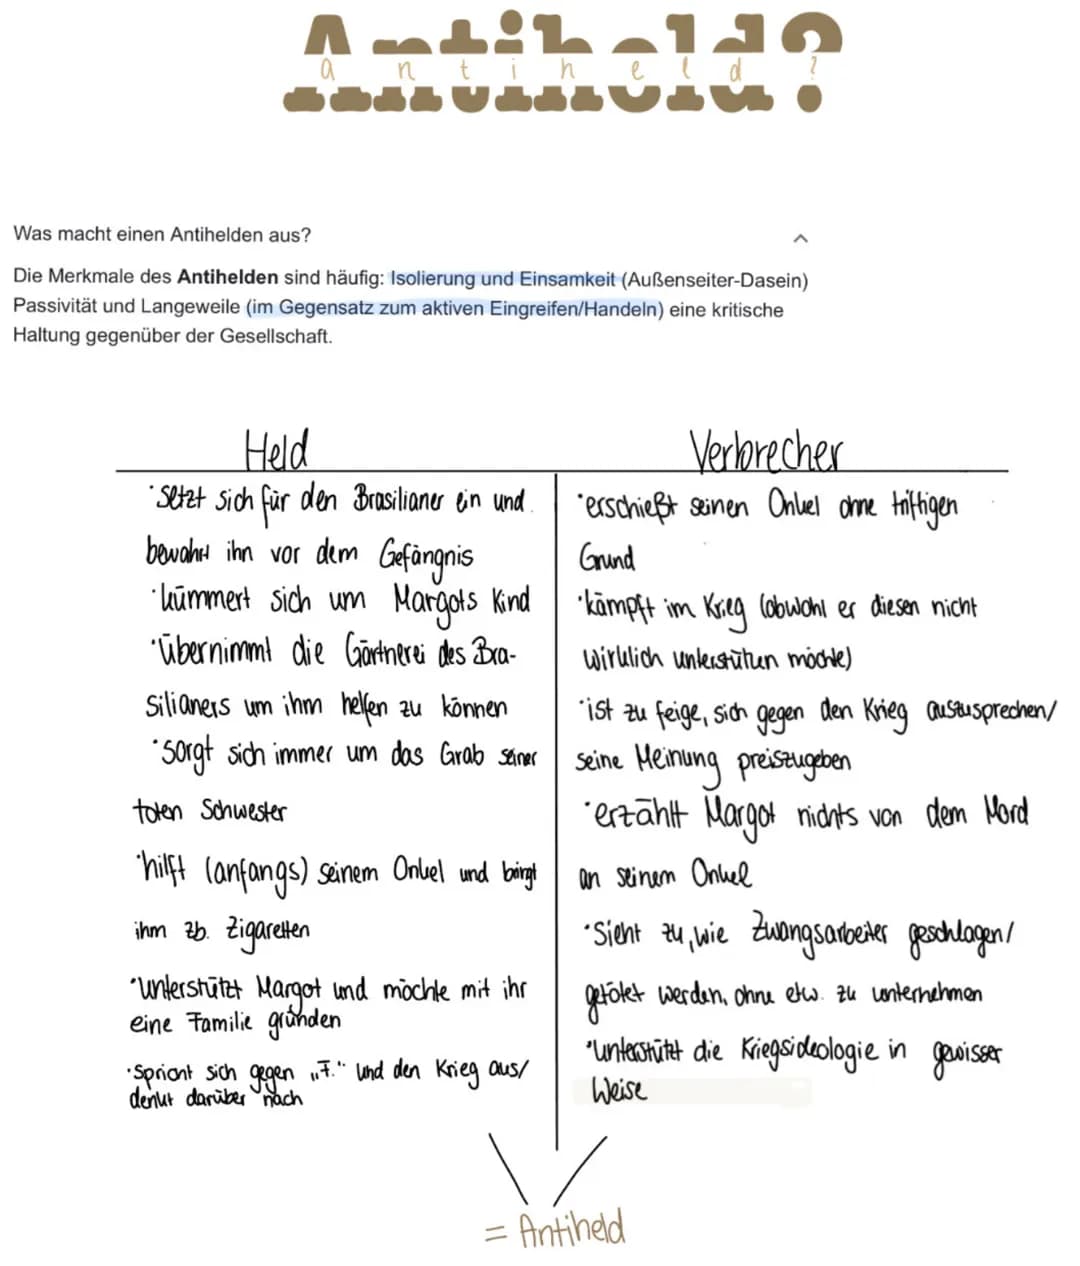 Antiheld?
antiheld?
Was macht einen Antihelden aus?
Die Merkmale des Antihelden sind häufig: Isolierung und Einsamkeit (Außenseiter-Dasein)
Passivität und Langeweile (im Gegensatz zum aktiven Eingreifen/Handeln) eine kritische
Haltung gegenüber der Gesellschaft.
Held
·setzt sich für den Brasilianer ein und
bewahrt ihn vor dem Gefängnis
·kümmert sich um Margots Kind
·übernimmt die Gärtnerei des Bra-
silianers um ihm helfen zu können
·sorgt sich immer um das Grab seiner
toten Schwester
·hilft (anfangs) seinem Onkel und bringt
ihm zb. Zigaretten
·unterstützt Margot und möchte mit ihr
eine Familie gründen
·Spricht sich gegen „F." und den Krieg aus/
denkt darüber nach
Verbrecher
·erschießt seinen Onkel ohne triftigen
Grund
·kämpft im Krieg (obwohl er diesen nicht
wirklich unterstützen möchte)
·ist zu feige, sich gegen den Krieg auszusprechen/
seine Meinung preiszugeben
·erzählt Margot nichts von dem Mord
an seinem Onkel
·Sieht zu, wie Zwangsarbeiter geschlagen/
getötet werden, ohne etw. zu unternehmen
·unterstützt die Kriegsideologie in gewisser
Weise
= Antiheld